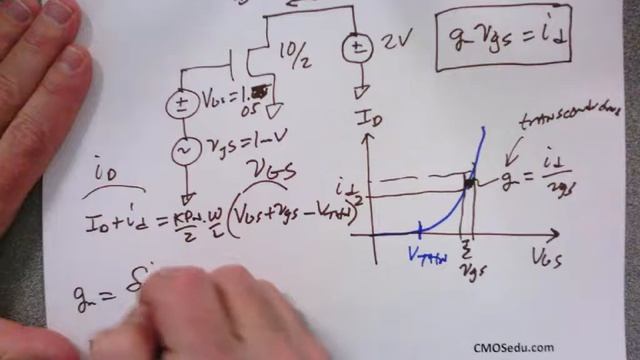 g vgs = id
10/2
± 2V
± VGS = 1.
05
~ vgs = 1mV
ID
transconductance
iD
vGS
id
g = id/vgs
ID + id = KPn/2 · W/L (VGS + vgs − VTHN)²
VTHN
vgs
VGS
gm = δi
CMOSedu.com